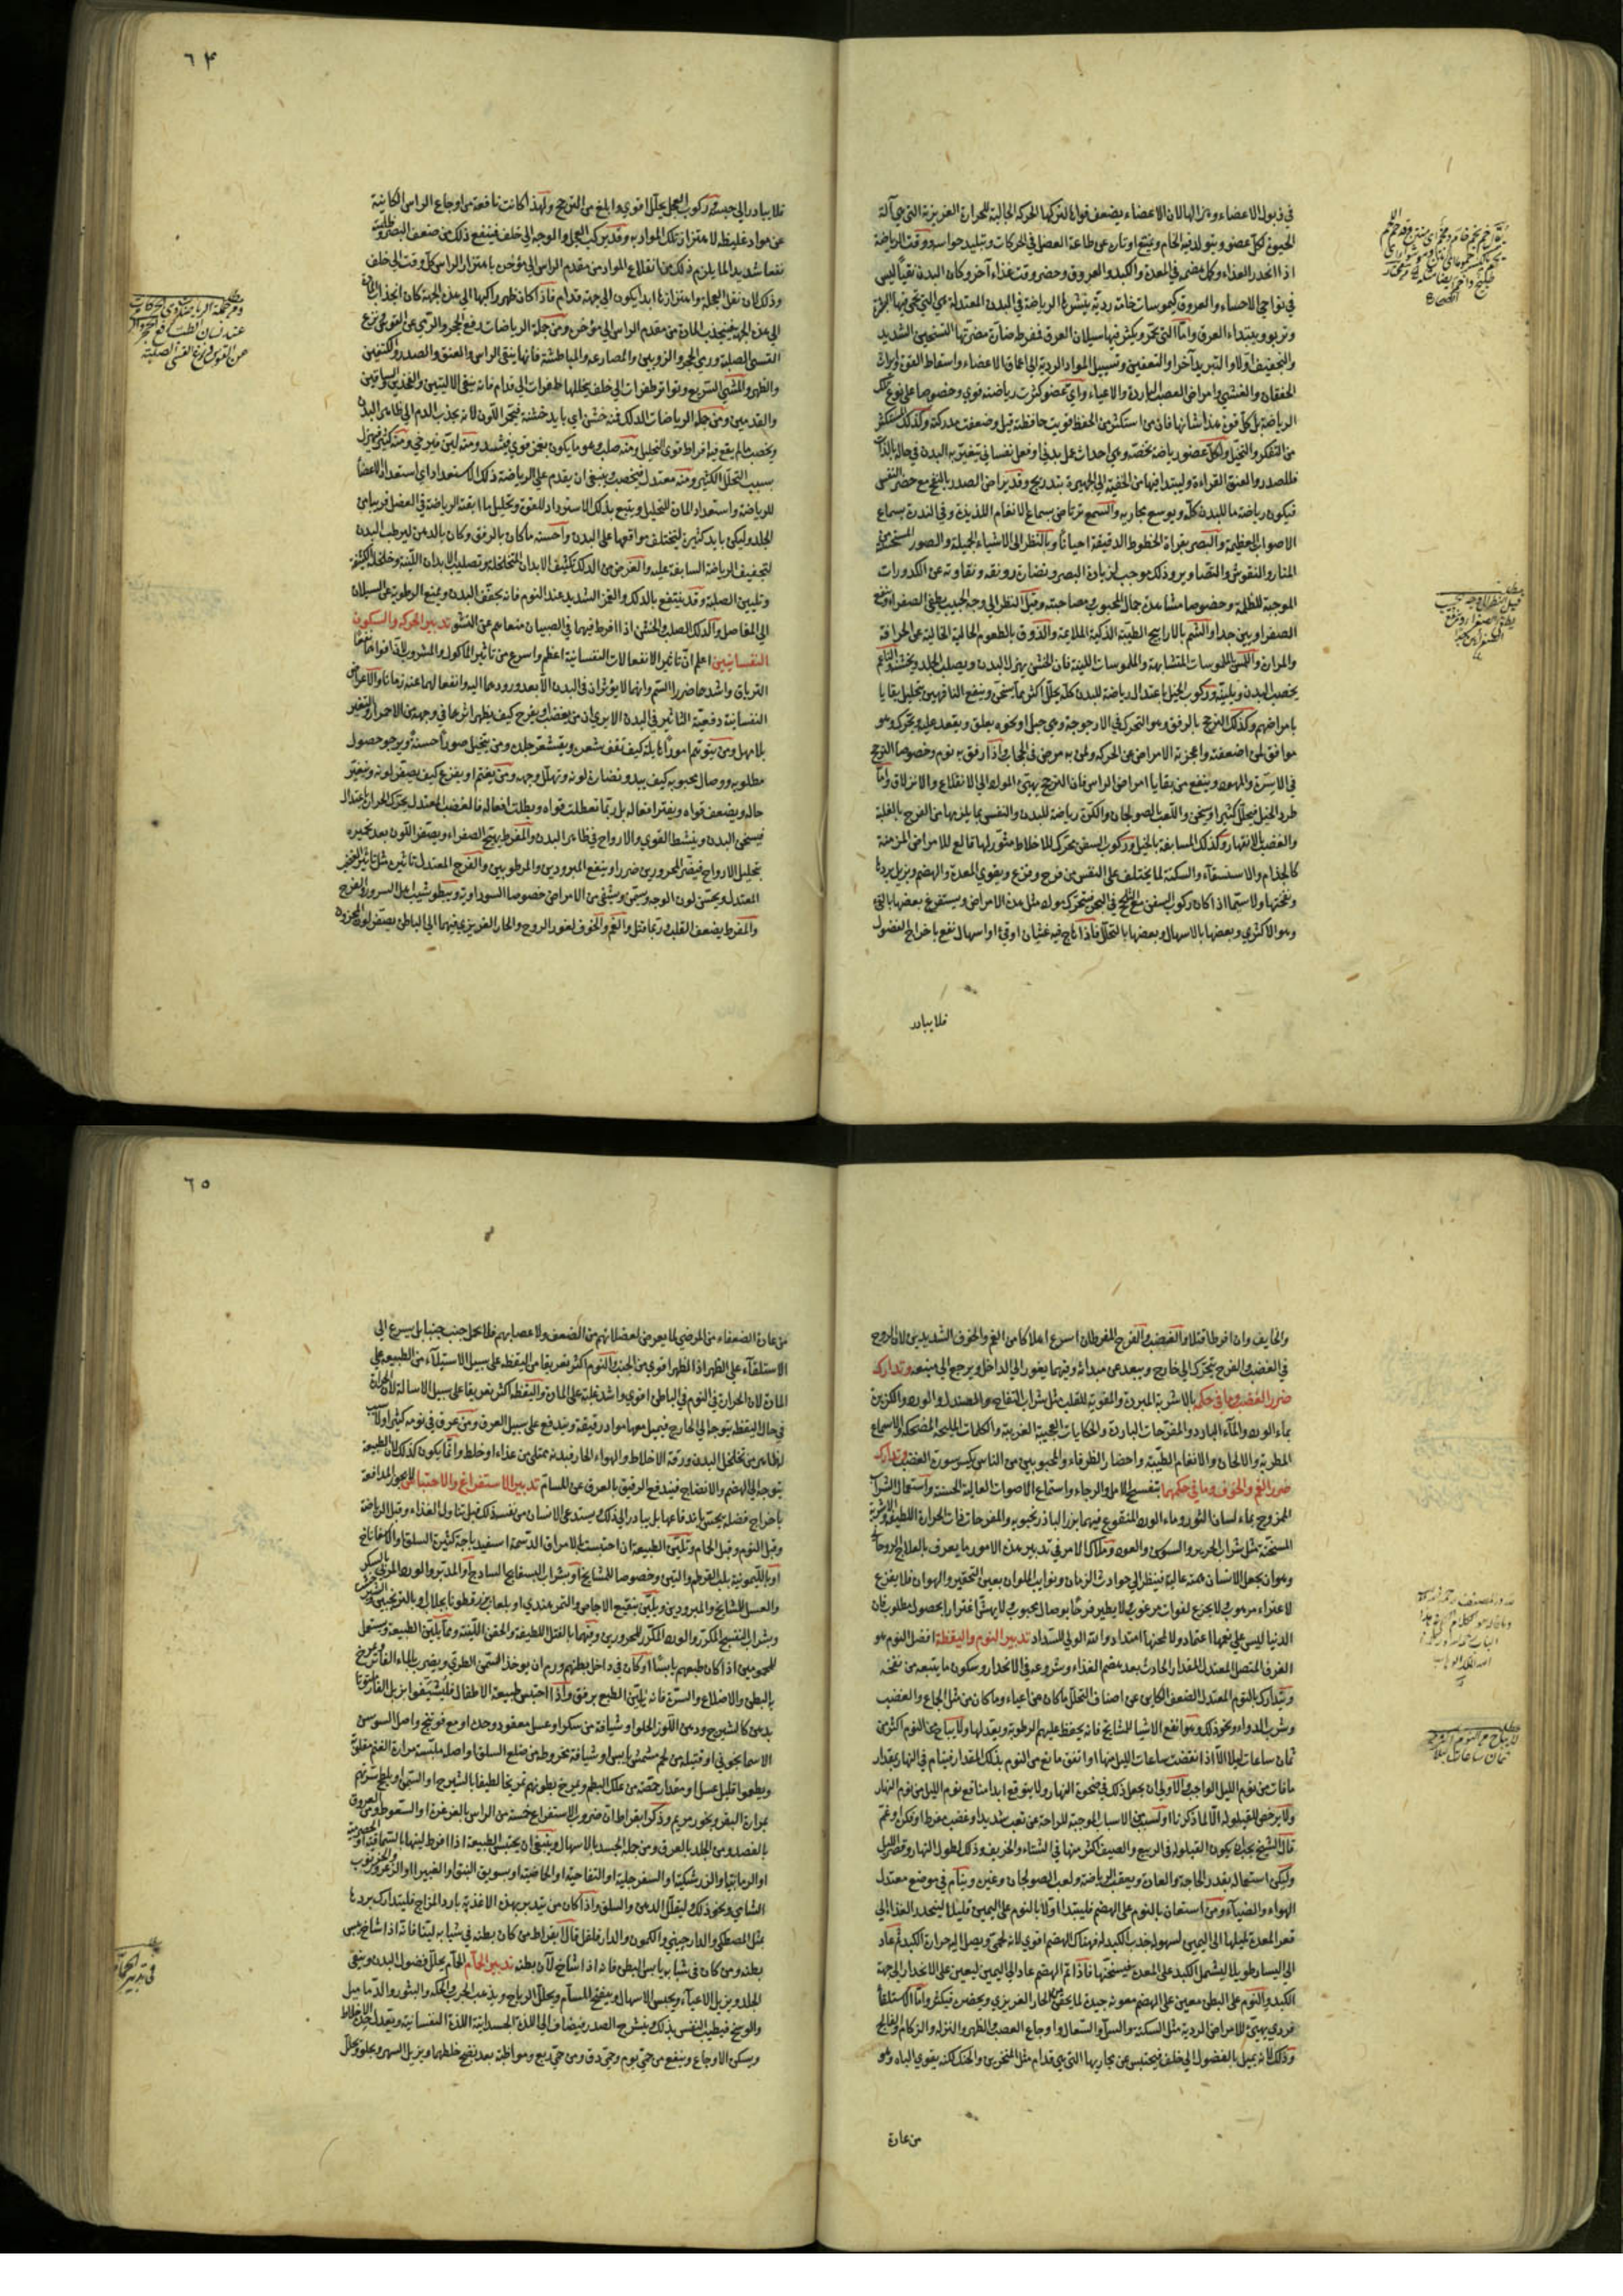 في ذبول الاعضاء وهزالها لان الاعضاء يضعف قواها لتركها الحركة الجالبة للحرارة الغريزية التي هي آلة
الحيوة لكل عضو ويتولد فيه الخام
اذا انحدر الغذاء وكمل هضمه في المعدة والكبد والعروق وحضر وقت غذاء آخر وكان البدن نقيا ليس
في نواحي الاحشاء والعروق كيموسات خامة ردية ينشرها الرياضة في البدن المعتدلة هي التي تحمر فيها البشرة
وتربو ويبتداء العرق وامّا التي تخور ويكثر فيها سيلان العرق فمفرطة ضارة مضرتها التسخين الشديد
والتجفيف اولا والتبريد آخرا والتعفين وتسييل المواد الردية الى اعماق الاعضاء واسقاط القوة وايراث
الخفقان والغشي وامراض العصب الباردة والاعياء واي عضو كثرت رياضته قوي وخصوصا على نوع تلك
الرياضة بل كل قوة هذا شانها فان من استكثر من الحفظ قويت حافظته قيل وضعفت مدركته وكذلك المستكثر
من التفكر والتخيل ولكل عضو رياضة تخصه وهي احداث عمل بدني او فعل نفساني يتغير به البدن في حاله بالذات
فللصدر والعنق القراءة وليبتدا فيها من الخفية الى الجهيرة بتدريج وقد يراض الصدر بالنفخ مع حصر النفس
فيكون رياضة ما للبدن كله ويوسع مجاريه والسمع يرتاض بسماع الانغام اللذيذة وفي الندرة بسماع
الاصوات العظيمة والبصر بقراءة الخطوط الدقيقة احيانا وبالنظر الى الاشياء الجميلة والصور المستحسنة
المنار والنقوش والتصاوير وذلك موجب لزيادة البصر ونضارة رونقه ونقاوته عن الكدورات
الموجبة للظلمة وخصوصا مشاهدة جمال المحبوب ومصاحبته وقيل النظر الى وجه الحبيب يطفي الصفراء وينفع
الصفراويين جدا والشم بالاراييح الطيبة الذكية الملاءمة والذوق بالطعوم الحالية الخالية عن الحرافة
والمرارة واللمس بالملموسات المتشابهة والملموسات اللينة فان الخشن يهزل البدن ويصلب الجلد ويخشنه والناعم
يخصب البدن ويلينه وركوب الخيل باعتدال رياضة للبدن كله يحلل اكثر مما يسخن وينفع الناقهين بتحليل بقايا
امراضهم وكذلك الترجح بالرفق وهو التحرك في الارجوحة وهي حبل او نحوه يعلق ويقعد عليه ويتحرك وهو
موافق لمن اضعفته واعجزته الامراض عن الحركة ولمن به مرض في الحجاب واذا رفق به نوم وخصوصا الترجح
في الاسرة والمهود وينتفع من بقايا امراض الراس فان الترجح يهيئ المواد الى الانقلاع والانزلاق وامّا
طرد الخيل فيحلل كثيرا ويسخن واللعب بالصولجان والكرة رياضة للبدن والنفس بما يلزمها من الفرح بالغلبة
والغضب بالانقهار وكذلك المسابقة بالخيل وركوب السفن محرك للاخلاط مثور لها قالع للامراض المزمنة
كالجذام والاستسقاء والسكتة لما يختلف على النفس من فرح وفزع ويقوي المعدة والهضم ويزيل بردها
ونفختها ولا سيما اذا كان ركوب السفن في البحر فيتحرك مواد مثل هذه الامراض ويستفرغ بعضها بالقئ
وهو الاكثري وبعضها بالاسهال وبعضها بالتحلل فاذا هاج فيه غثيان او قئ او اسهال نفع باخراج الفضول
فلا يبادر
قيل النظر الى وجه الحبيب
يطفي الصفراء وينفع
الصفراويين جدا
٦٤
فلا يبادر الى حبسه وركوب العجل يحلل اقوى وابلغ من الترجح ولهذا كانت نافعة من اوجاع الراس الكاينة
عن مواد غليظة لاهتزاز تلك المواد به وقد يركب العجل والوجه الى خلف فينفع ذلك من ضعف البصر وظلمته
نفعا شديدا لما يلزم ذلك من انقلاع المواد من مقدم الراس الى مؤخره باهتزاز الراس كل وقت الى خلف
وذلك لان نقل العجلة واهتزازها ابدا يكون الى جهة قدام فاذا كان ظهر راكبها الى هذه الجهة كان انجذاب المادة
الى هذه الجهة فينجذب المادة من مقدم الراس الى مؤخره ومن جملة الرياضات رفع الحجر والرمي عن القوس ونزع
القسي الصلبة ورمي الحجر والزوبين والمصارعة والمباطشة فانها ينقي الراس والعنق والصدر والكتفين
والظهر والمشي السريع وتواتر طفرات الى خلف يتخللها طفرات الى قدام فانه ينقي الاليتين والفخذين والساقين
والقدمين ومن جملة الرياضات الدلك فمنه خشن اي بايد خشنة فيحمر اللون لانه يجذب الدم الى ظاهر البدن
ويخصب ما لم يقع فيه افراط قوي التحليل ومنه صلب وهو ما يكون بغمز قوي فيشدد ومنه لين فيرخي ومنه كثير فيهزل
بسبب التحلل الكثير ومنه معتدل فيخصب وينبغي ان يقدم على الرياضة ذلك الاستعداد اي استعداد الاعضا
للرياضة واستعداد المادة للتحليل ويتبع بدلك الاسترداد للقوة وتحليل ما ابقته الرياضة في العضل قريبا من
الجلد وليكن بايد كثيرة لتختلف مواقعها على البدن واحسنه ما كان بالرفق وكان بالدهن ليرطب البدن
لتجفيف الرياضة السابقة عليه والغرض من الدلك تكثيف الابدان المتخلخلة وتصليب الابدان اللينة وخلخلة الكثيفة
وتليين الصلبة وقد ينتفع بالدلك والغمز الشديد عند النوم فانه يجفف البدن ويمنع الرطوبة عن السيلان
الى المفاصل والدلك الصلب والخشن اذا افرط فيهما في الصبيان منعاهم عن النشو تدبير الحركة والسكون
النفسانيين اعلم ان تاثير الانفعالات النفسانية اعظم واسرع من تاثير الماكول والمشروب
الترياق واشدها ضررا السم وانهما لا يؤثران في البدن الا بعد ورودهما اليه وانفعالهما عنه زمانا والاعراض
النفسانية دفعية التاثير في البدن الا يرى ان من يغضب او يفرح كيف يظهر اثرهما في وجهه من الاحمرار والتغير
بلا مهل ومن يتوهم امورا هايلة كيف يقف شعره ويقشعر جلده ومن يتخيل صورا حسنة ويرجو حصول
مطلوبه ووصال محبوبه كيف يبدو نضارة لونه وتهلل وجهه ومن يغتم او يفزع كيف يصفر لونه ويتغير
حاله ويضعف قواه ويفتر افعاله بل ربما تعطلت قواه وبطلت افعاله فالغضب المعتدل يحرك الحرارة باعتدال
فيسخن البدن وينشط القوى والارواح في ظاهر البدن والمفرط يهيج الصفراء ويصفر اللون بعد تحميره
بتحليل الارواح فيضر المحرورين ضررا وينفع المبرودين والمرطوبين والفرح المعتدل تاثيره مثل تاثير الغضب
المعتدل ويحسن لون الوجه ويسمن ويشفي من الامراض خصوصا السوداوية ويبطو شيب اهل السرور والفرح
والمفرط يضعف القلب وربما قتل والغم والخوف لغور الروح والحار الغريزي فيهما الى الباطن يصفر لون المحزون
ومن جملة الرياضات
والخايف وان افرطا قتلا والغضب والفرح المفرطان اسرع اهلاكا من الغم والخوف الشديدين لان الروح
في الغضب والفرح يتحرك الى خارج ويبعد عن مبدائه وفيهما يغور الى الداخل ويرجع الى منبعه وتدارك
ضرر الغضب وما في حكمه بالاشربة المبردة والمقوية للقلب مثل شراب التفاح والصندل والورد والكزبرة
بماء الورد والماء البارد والمفرحات الباردة والحكايات العجيبة الغريبة والكلمات المليحة المضحكة والاسماع
المطربة والالحان والانغام الطيبة واحضار الظرفاء والمحبوبين من الناس يكسر سورة الغضب وتدارك
ضرر الغم والخوف وما في حكمهما بتفسيح الامل والرجاء واستماع الاصوات العالية الحسنة واستعمال الشراب
الممزوج بماء لسان الثور وماء الورد المنقوع فيهما بزر الباذرنجبويه والمفرحات الحارة اللطيفة والاشربة
المسخنة مثل شراب الحرير والسوسن والعود وملاك الامر في تدبير هذه الامور ما يعرف بالعلاج الروحاني
وهو ان يجعل الانسان همته عالية فينظر الى حوادث الزمان ونوايب الملوان بعين التحقير والهوان فلا يفزع
لاعتراء مرهوب لا يجزع لفوات مرغوب لا يطير فرحا بوصال محبوب لا يهش اغترارا بحصول مطلوب فان
الدنيا ليس على نعيمها اعتماد ولا لمحنها امتداد والله الولي للسداد تدبير النوم واليقظة افضل النوم هو
الغرق المتصل المعتدل المقدار الحادث بعد هضم الغذاء وشروعه في الانحدار وسكون ما يتبعه من نفخة
ويتدارك بالنوم المعتدل الضعف الكاين عن اصناف التحلل ما كان من اعياء وما كان من مثل الجماع والغضب
وشرب الدواء ونحو ذلك وهو انفع الاشيا للمشايخ فانه يحفظ عليهم الرطوبة ويعيدها ولا يباح من النوم اكثر من
ثمان ساعات ليلا الا اذا انقضت ساعات الليل منها او اتفق مانع من النوم بذلك المقدار فينام في النهار بمقدار
ما فات من نوم الليل الواجب والاولى ان يجعل ذلك في ضحوة النهار ولا يتوقع ابدا منافع نوم الليل من نوم النهار
ولا يرخص للقيلولة الا لما ذكرنا او لسبب من الاسباب الموجبة للراحة من تعب شديد او غضب مفرط او فكر او غم
قال الشيخ يجب ان يكون القيلولة في الربيع والصيف اكثر منها في الشتاء والخريف وذلك لطول النهار وقصر الليل
وليكن استعماله بقدر الحاجة والعادة ويعقب الرياضة ولعب الصولجان وغيره وينام في موضع معتدل
الهواء والضياء ومن استعان بالنوم على الهضم فليبتدا اولا بالنوم على اليمين قليلا لينحدر الغذاء الى
قعر المعدة لميلها الى اليمين لسهولة جذب الكبد له فهناك الهضم اقوى لانه لحمي ويصل اليه حرارة الكبد ثم عاد
الى اليسار طويلا ليشتمل الكبد على المعدة فيسخنها فاذا تم الهضم عاد الى اليمين ليعين على الانحدار الى جهة
الكبد والنوم على البطن معين على الهضم معونة جيدة لما يحقن من الحار الغريزي ويحصره فيكثر وامّا الاستلقاء
فردي يهيئ للامراض الردية مثل السكتة والسل والسعال واوجاع العصب والظهر والنزلة والزكام والفالج
وذلك لانه يميل بالفضول الى خلف فيحتبس عن مجاريها التي هي قدام مثل المنخرين والحنك لكنه يقوي الباه وهو
من عادة
لا يباح من النوم اكثر من
ثمان ساعات ليلا
٦٥
من عادة الضعفاء من المرضى لما يعرض لعضلاتهم من الضعف ولاعصابهم فلا يحمل جنب جنبا بل يسرع الى
الاستلقاء على الظهر اذ الظهر اقوى من الجنب والنوم اكثر تعريقا من اليقظة على سبيل الاستيلاء من الطبيعة على
المادة لان الحرارة في النوم في الباطن اقوى واشد غلبة على المادة واليقظة اكثر تعريقا على سبيل الاسالة لان الحرارة
في حال اليقظة يتوجه الى الخارج فيسيل معها مواد رقيقة ويندفع على سبيل العرق ومن عرق في نومه كثيرا ولا سبب
لظاهر من تخلخل البدن ورقة الاخلاط والهواء الحار فبدنه ممتلئ من غذاء او خلط وانما يكون كذلك لان الطبيعة
يتوجه الى الهضم والانضاج فيندفع الرقيق بالعرق عن المسام تدبير الاستفراغ والاحتباس لا يجوز المدافعة
باخراج فضلة يحس باندفاعها بل يبادر الى ذلك ويستدعي الانسان من نفسه ذلك قبل تناول الغذاء وقبل الرياضة
وقبل النوم وقبل الحمام وتليين الطبيعة ان احتبست بالامراق الدسمة اسفيدباجة كثيرة السلق والاسفاناخ
او بالليمونية بلب القرطم والتين وخصوصا للمشايخ او بشراب البنفسج الساذج او المدبر والورد المربى بالسكر
والعسل للمشايخ والمبرودين ويلين بنقيع الاجاص والتمرهندي او بلعاب بزر قطونا بجلاب وبالترنجبين
وبشراب البنفسج المكرر والورد المكرر للمحرورين وفيهما بالفتل اللطيفة والحقن اللينة ومما يلين الطبيعة ويستعمل
للمحمومين اذا كان طبعهم يابسا او كان في داخل بطنهم ورم ان يوخذ السمن الطري ويضرب بالماء الفاتر ويمرخ
بالبطن والاضلاع والسرة فانه يلين الطبع برفق واذا احتبس طبيعة الاطفال فليشيفوا بزبل الفار ملتوتا
بدهن كالشيرج ودهن اللوز الحلو او شيافة من سكر او عسل معقود وحده او مع فوتنج واصل السوسن
الاسمانجوني او فتيلة من لحم مشمش يابس او شيافة مخروطة من ضلع السلق او اصله ملبسة مرارة الغنم
ويطعموا قليل عسل او مقدار حمصة من علك البطم ويمرخ بطونهم تمريخا لطيفا بالشيرج او السمن او يلطخ سرتهم
بمرارة البقر وبخور مريم وذكر ابقراط ان ضروب الاستفراغ خمسة من الراس بالغرغرة او السعوط ومن العروق
بالفصد ومن الجلد بالعرق ومن جملة الجسد بالاسهال وينبغي ان يحتبس الطبيعة اذا افرط لينها بالسماقية او الحصرمية
او الرمانية والزرشكية او السفرجلية او التفاحية او الحماضية او بسويق النبق والغبيراء او الزعرور والخرنوب
الشامي ونحو ذلك وليقلل الدهن والسلق واذا كان من يتدبر بهذه الاغذية بارد المزاج فليتدارك بردها
بمثل المصطكي والدارچيني والكمون والدارفلفل قال ابقراط من كان بطنه في شبابه لينا فانه اذا شاخ يبس
بطنه ومن كان في شبابه يابس البطن فانه اذا شاخ لان بطنه تدبير الحمام الحمام يحلل فضول البدن وينقي
الجلد ويزيل الاعياء ويحبس الاسهال ويفتح المسام ويحلل الرياح ويذهب الجرب والحكة والبثور والدماميل
والوسخ فيطيب النفس بذلك وينشرح الصدر فيضاف الى اللذة الجسدانية اللذة النفسانية ويعدل الاخلاط
ويسكن الاوجاع وينفع من حمى يوم وحمى دق ومن حمى ربع ومواظبة بعد نضج خلطهما ويزيل السهر
في تدبير الحمام